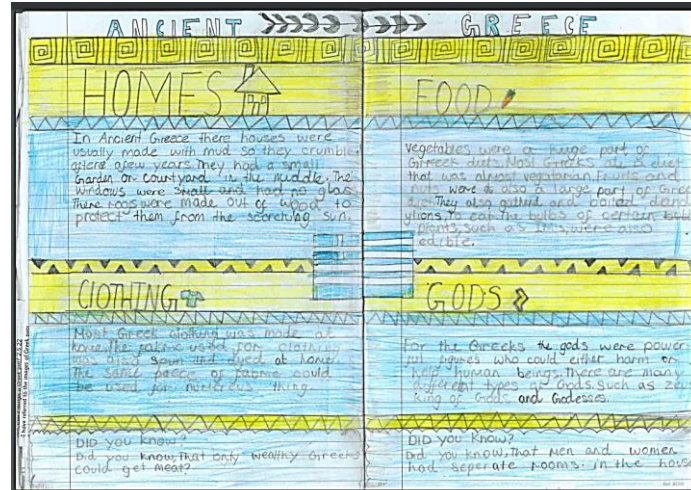 ANCIENT GREECE
HOMES
In Ancient Greece there houses were
usually made with mud so they crumble
after a few years. They had a small
garden or courtyard in the middle. The
windows were small and had no glass
There roofs were made out of wood to
protect them from the scorching sun.
CLOTHING
Most Greek clothing was made at
home. The fabric used for clothing
was also spun and dyed at home
The same peece of fabric could
be used for numerous thing.
DID you know?
Did you know, That only wealthy Greeks
could get meat?
FOOD
Vegetables were a huge part of
Greek diets. Most Greeks ate a diet
that was almost vegatarian. Fruits and
nuts were also a large part of Gree
diet. They also gatherd and boiled dand
ylions, To eat. The bulbs of certain bulb
plants, such as were also
edible.
GODS
For the Greeks the gods were power
ful figures who could either harm or
help human beings. There are many
different types of Gods. Such as zeu
king of Gods and Godesses.
DID you Know?
Did you know, That men and women
had seperate rooms in the house